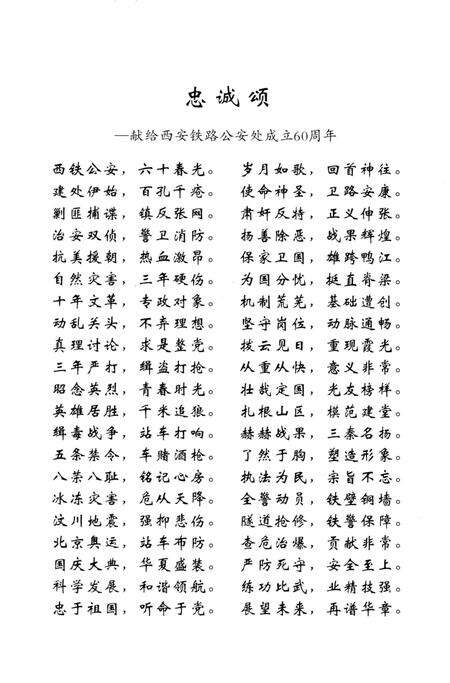 忠诚颂
—献给西安铁路公安处成立60周年
西铁公安，六十春光。 岁月如歌，回首神往。
建处伊始，百孔千疮。 使命神圣，卫路安康。
剿匪捕谍，镇反张网。 肃奸反特，正义伸张。
治安双侦，警卫消防。 扬善除恶，战果辉煌。
抗美援朝，热血激昂。 保家卫国，雄跨鸭江。
自然灾害，三年硬伤。 为国分忧，挺直脊梁。
十年文革，专政对象。 机制荒芜，基础遭创。
动乱关头，不弃理想。 坚守岗位，动脉通畅。
真理讨论，求是整党。 拨云见日，重现霞光。
三年严打，缉盗打抢。 从重从快，意义非常。
昭念英烈，青春时光。 壮哉定国，光友榜样。
英雄居胜，千米追狼。 扎根山区，模范建堂。
缉毒战争，站车打响。 赫赫战果，三秦名扬。
五条禁令，车赌酒枪。 了然于胸，塑造形象。
八荣八耻，铭记心房。 执法为民，宗旨不忘。
冰冻灾害，危从天降。 全警动员，铁壁铜墙。
汶川地震，强抑悲伤。 隧道抢修，铁警保障。
北京奥运，站车布防。 查危治爆，贡献非常。
国庆大典，华夏盛装。 严防死守，安全至上。
科学发展，和谐领航。 练功比武，业精技强。
忠于祖国，听命于党。 展望未来，再谱华章。